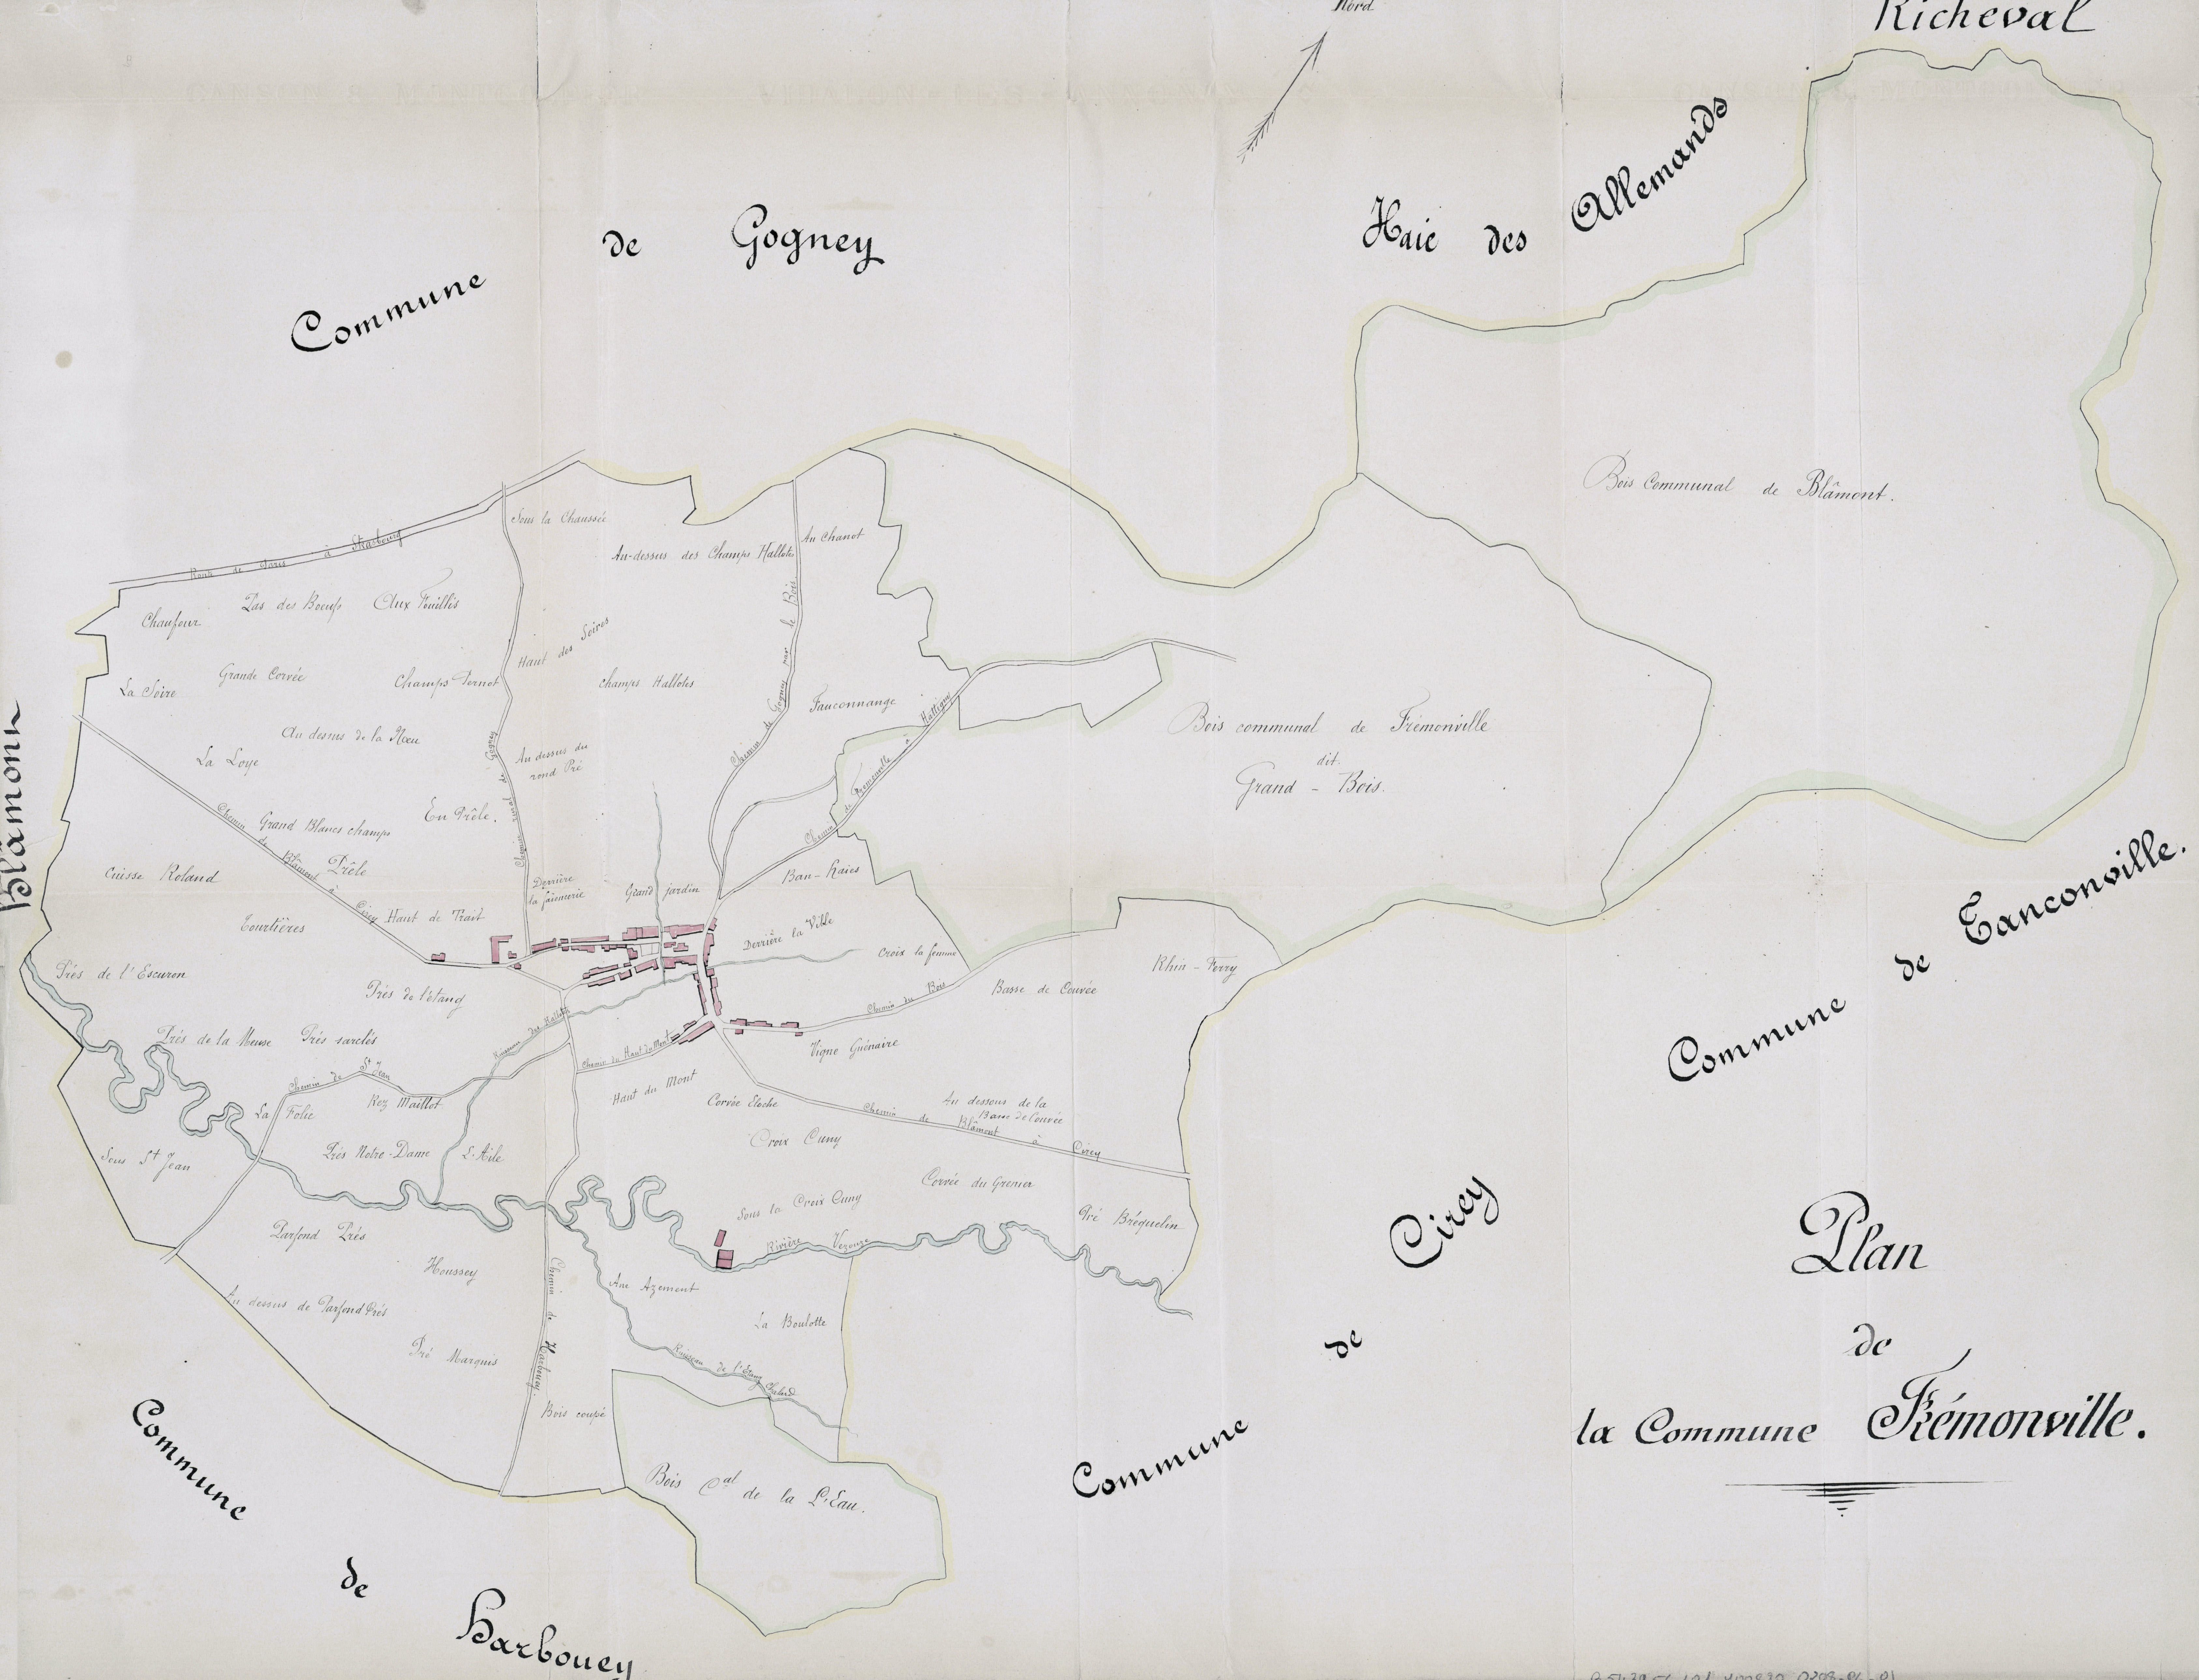 Nord
Richeval
Commune de Gogney
Haie des Allemands
Bois Communal de Blâmont.
Route de Paris à Strasbourg
Sous la Chaussée
Au-dessus des Champs Hallotes
Au Chanot
Pas des Boeufs
Aux Fouillis
Chaufour
Haut des Soires
Grande Corvée
Champs Pernot
champs Hallotes
La Soire
Fauconnange
Chemin de Gogney par le Bois
Chemin de Fremonville à Hattigny
Bois communal de Frémonville
dit
Grand - Bois.
Au dessus de la Noeu
La Loye
Au dessus du
rond Pré
Chemin rural de Gogney
Blâmont
En Prêle.
Grand Blancs champs
Chemin de Blâmont à Cirey
Prêle
Cuisse Roland
Derrière
la faïencerie
Grand jardin
Ban-haies
Haut de Trait
Tourtières
Derrière la Ville
Croix la femme
Commune de Tanconville.
Prés de l'Escuron
Prés de l'étang
Basse de Couvée
Rhin-Ferry
Chemin du Bois
Prés de la Meuse
Prés sarclés
Ruisseau des Hallotes
Chemin du Haut du Mont
Vigne Guénaire
Chemin de St Jean
La Folie
Roz Maillot
Haut du Mont
Corvée Eloche
Au dessous de la
Basse de Couvée
Chemin de Blâmont à Cirey
Croix Cuny
Sous St Jean
Prés Notre-Dame
L'Aile
Corvée du Grenier
Sous la Croix Cuny
Pré Bréquelin
Parfond Prés
Rivière Vezouze
Commune de Cirey
Houssey
Chemin de Harbouey
Ane Azement
Au dessus de Parfond Prés
La Boulotte
Pré Marquis
Ruisseau de l'Etang Chalard
Bois coupé
Bois Cal de la L'Eau.
Commune de Harbouey
Plan
de
la Commune Frémonville.